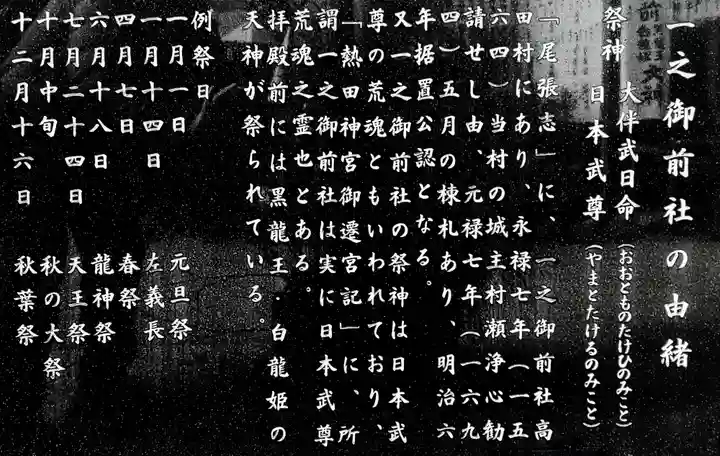 一之御前社の由緒
祭神　大伴武日命（おおとものたけひのみこと）
日本武尊（やまとたけるのみこと）
「尾張志」に、一之御前社高
田村にあり、永禄七年（一五
六四）当村の城主村瀬浄心勧
請せし由、元禄七年（一六九
四）五月の棟札あり、明治六
年据置公認となる。
又一之御前社の祭神は日本武
尊の荒魂ともいわれており、
「熱田神宮御遷宮記」に、所
謂一之御前社は実に日本武尊
荒魂之霊也とある。
拝殿前には黒龍王・白龍姫の
天神が祭られている。
例祭日
一月一日　元旦祭
一月十四日　左義長
四月七日　春祭
六月十八日　龍神祭
七月二十四日　天王祭
十月中旬　秋の大祭
十二月十六日　秋葉祭